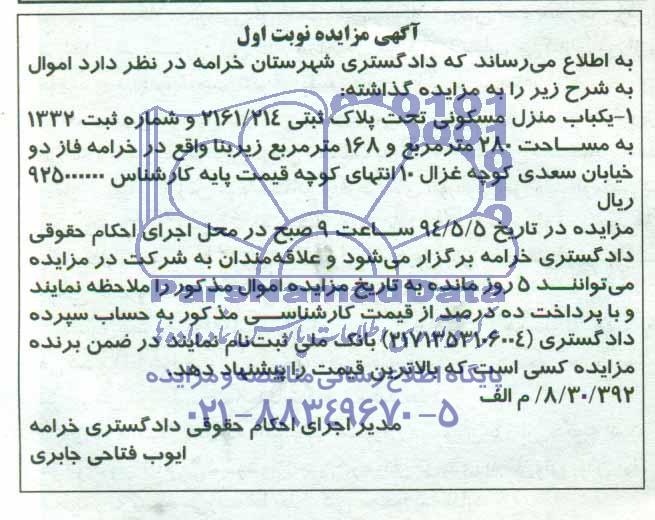 آگهی مزایده نوبت اول
به اطلاع می‌رساند که دادگستری شهرستان خرامه در نظر دارد اموال
به شرح زیر را به مزایده گذاشته:
۱-یکباب منزل مسکونی تحت پلاک ثبتی ۲۱۶۱/۲۱۴ و شماره ثبت ۱۳۳۲
به مساحت ۲۸۰ مترمربع و ۱۶۸ مترمربع زیربنا واقع در خرامه فاز دو
خیابان سعدی کوچه غزال ۱۰ انتهای کوچه قیمت پایه کارشناس ۹۲۵۰۰۰۰۰۰
ریال
مزایده در تاریخ ۹۴/۵/۵ ساعت ۹ صبح در محل اجرای احکام حقوقی
دادگستری خرامه برگزار می‌شود و علاقه‌مندان به شرکت در مزایده
می‌توانند ۵ روز مانده به تاریخ مزایده اموال مذکور را ملاحظه نمایند
ParsNamadData
و با پرداخت ده درصد از قیمت کارشناسی مذکور به حساب سپرده
دادگستری (۲۱۷۱۳۵۳۱۰۶۰۰۴) بانک ملی ثبت‌نام نمایند در ضمن برنده
مزایده کسی است که بالاترین قیمت را پیشنهاد دهد.
پایگاه اطلاع رسانی مناقصه و مزایده
۸/۳۰/۳۹۲/ م الف
۰۲۱-۸۸۳۴۹۶۷۰-۵
مدیر اجرای احکام حقوقی دادگستری خرامه
ایوب فتاحی جابری